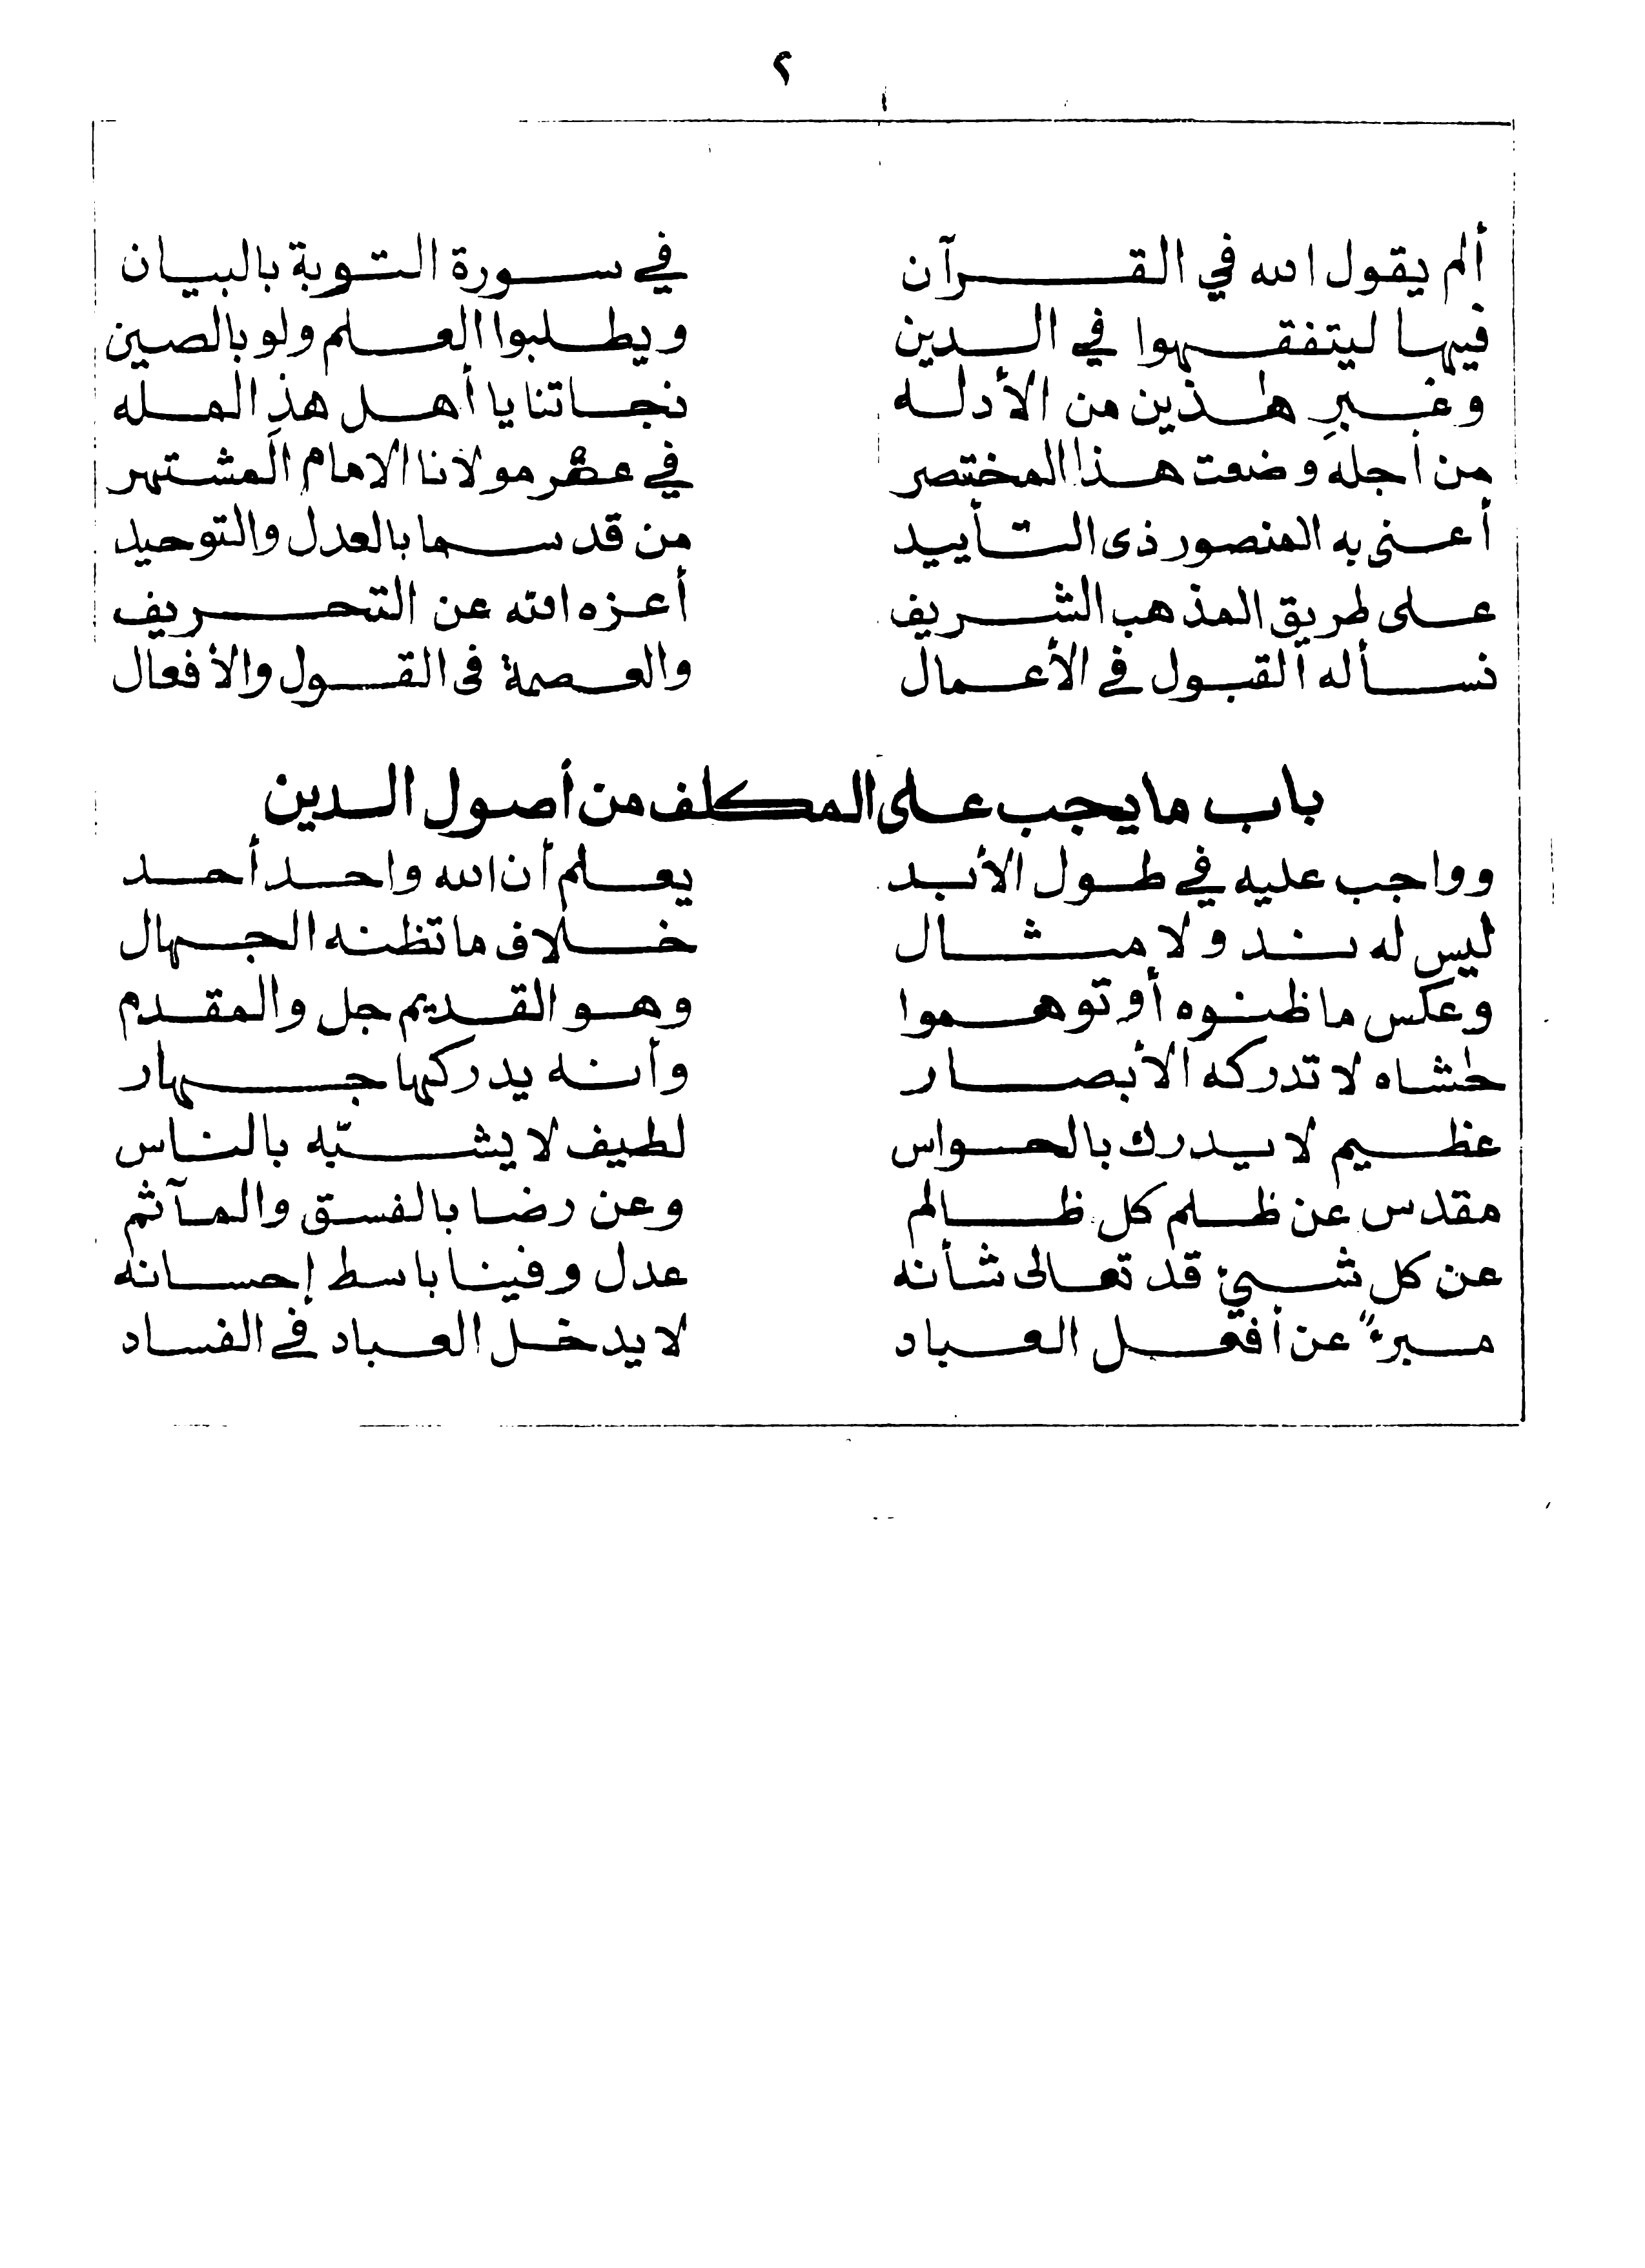 ٢
ألم يقول الله في القرآن في سورة التوبة بالبيان
فيها ليتفقهوا في الدين ويطلبوا العلم ولو بالصين
وغبرِ هذين من الأدله نجاتنا يا أهل هذِ المله
من أجله وضعت هذا المختصر في عصر مولانا الامام المشتهر
أعنى به المنصور ذى التأييد من قد سما بالعدل والتوحيد
على طريق المذهب الشريف أعزه الله عن التحريف
نسأله القبول في الأعمال والعصمة فى القول والأفعال
باب ما يجب على المكلف من أصول الدين
وواجب عليه في طول الأبد يعلم أن الله واحد أحد
ليس له ند ولا مثال خلاف ما تظنه الجهال
وعكس ما ظنوه أو توهموا وهو القديم جل والمقدم
حشاه لا تدركه الأبصار وأنه يدركها جهار
عظيم لا يدرك بالحواس لطيف لا يشبّه بالناس
مقدس عن ظلم كل ظالم وعن رضا بالفسق والمآثم
عن كل شيئ قد تعالى شأنه عدل وفينا باسط إحسانه
مبرءٌ عن أفعل العباد لا يدخل العباد في الفساد